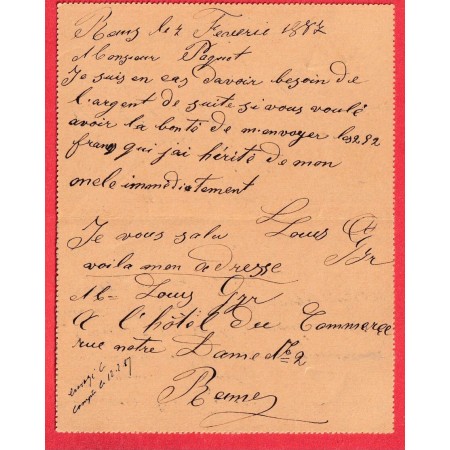 le 2 Fevrerie 1887
Monsieur Paquot
Je suis en cas davoir besoin de
l'argent de suite si vous voulé
avoir la bonté de m'envoyer les 292
francs qui j'ai hérité de mon
oncle immédiatement
Je vous salu Louis Gyr
voila mon adresse
Mr Louis Gyr
a l'hôtel du Commerce
rue notre Dame No 2